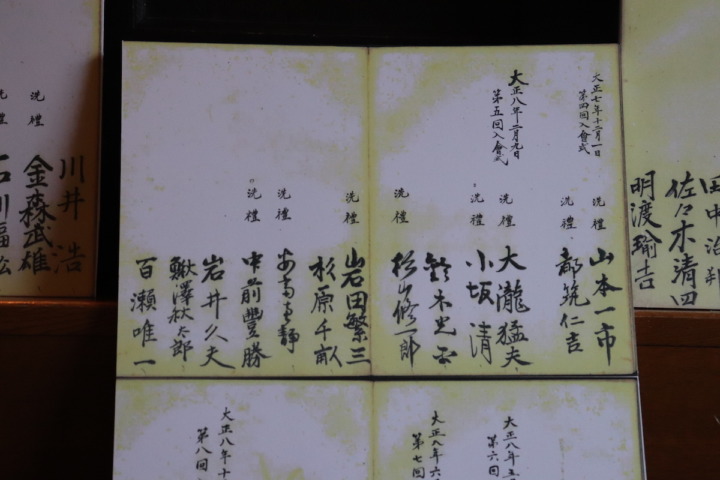 田中治
佐々木清四
明渡瑜吉
大正七年十二月一日
第四回入會式
山本一市
洗禮
都筑仁吉
大正八年二月九日
第五回入會式
大瀧猛夫
洗禮
小坂清
鈴木
洗禮
松山修一郎
洗禮
岩田繁三
杉原千畝
洗禮
静
洗禮
中前豐勝
岩井久夫
鰍澤秋太郎
百瀬唯一
川井浩
洗禮
金森武雄
洗禮
石川福松
大正八年五
第六回
大正八年六
第七回
大正八年十
第八回